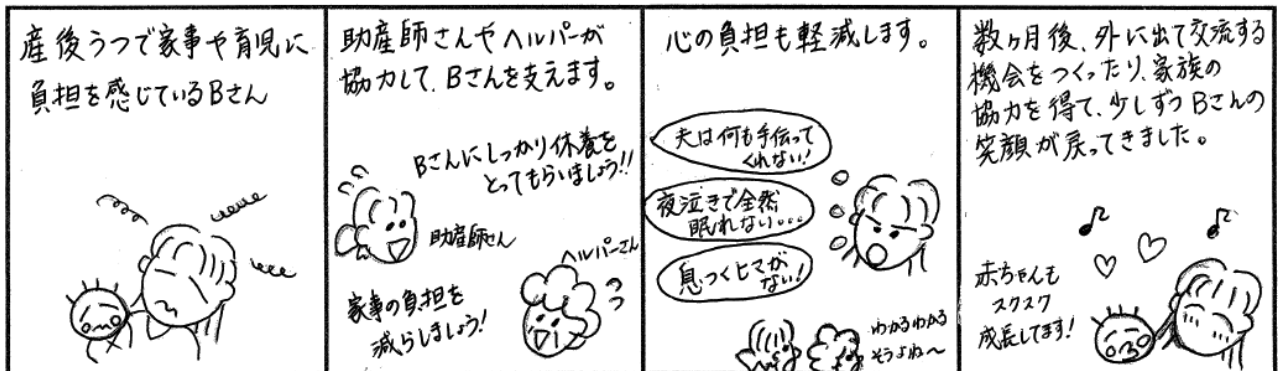 産後うつで家事や育児に
負担を感じているBさん
助産師さんやヘルパーが
協力して、Bさんを支えます。
Bさんにしっかり休養を
とってもらいましょう!!
助産師さん
ヘルパーさん
家事の負担を
減らしましょう!
心の負担も軽減します。
夫は何も手伝って
くれない!
夜泣きで全然
眠れない...
息つくヒマが
ない!
わかるわかる
そうよね〜
数ヶ月後、外に出て交流する
機会をつくったり、家族の
協力を得て、少しずつBさんの
笑顔が戻ってきました。
赤ちゃんも
スクスク
成長してます!